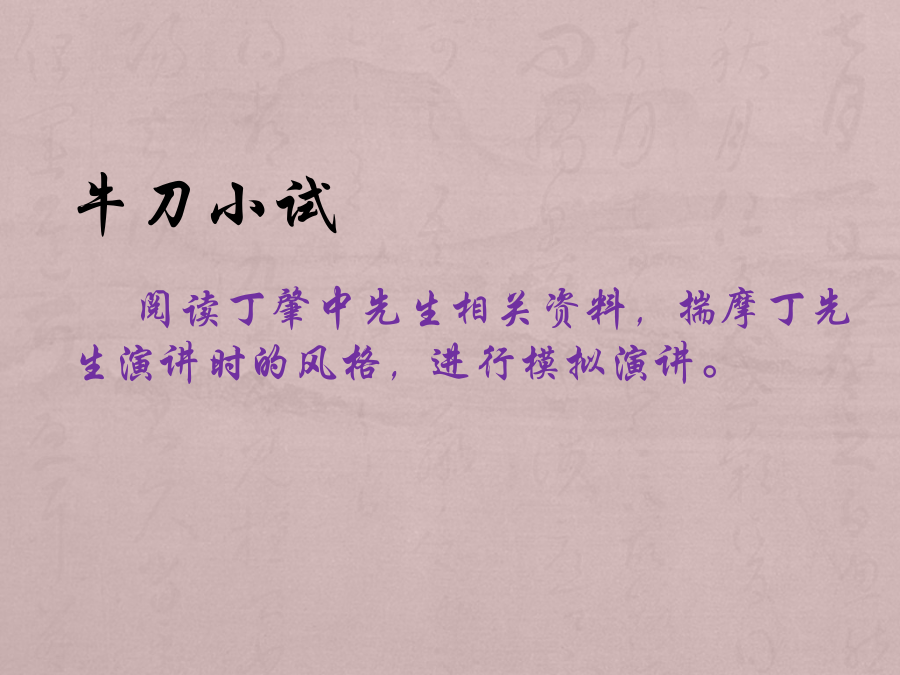 牛刀小试
阅读丁肇中先生相关资料，揣摩丁先
生演讲时的风格，进行模拟演讲。